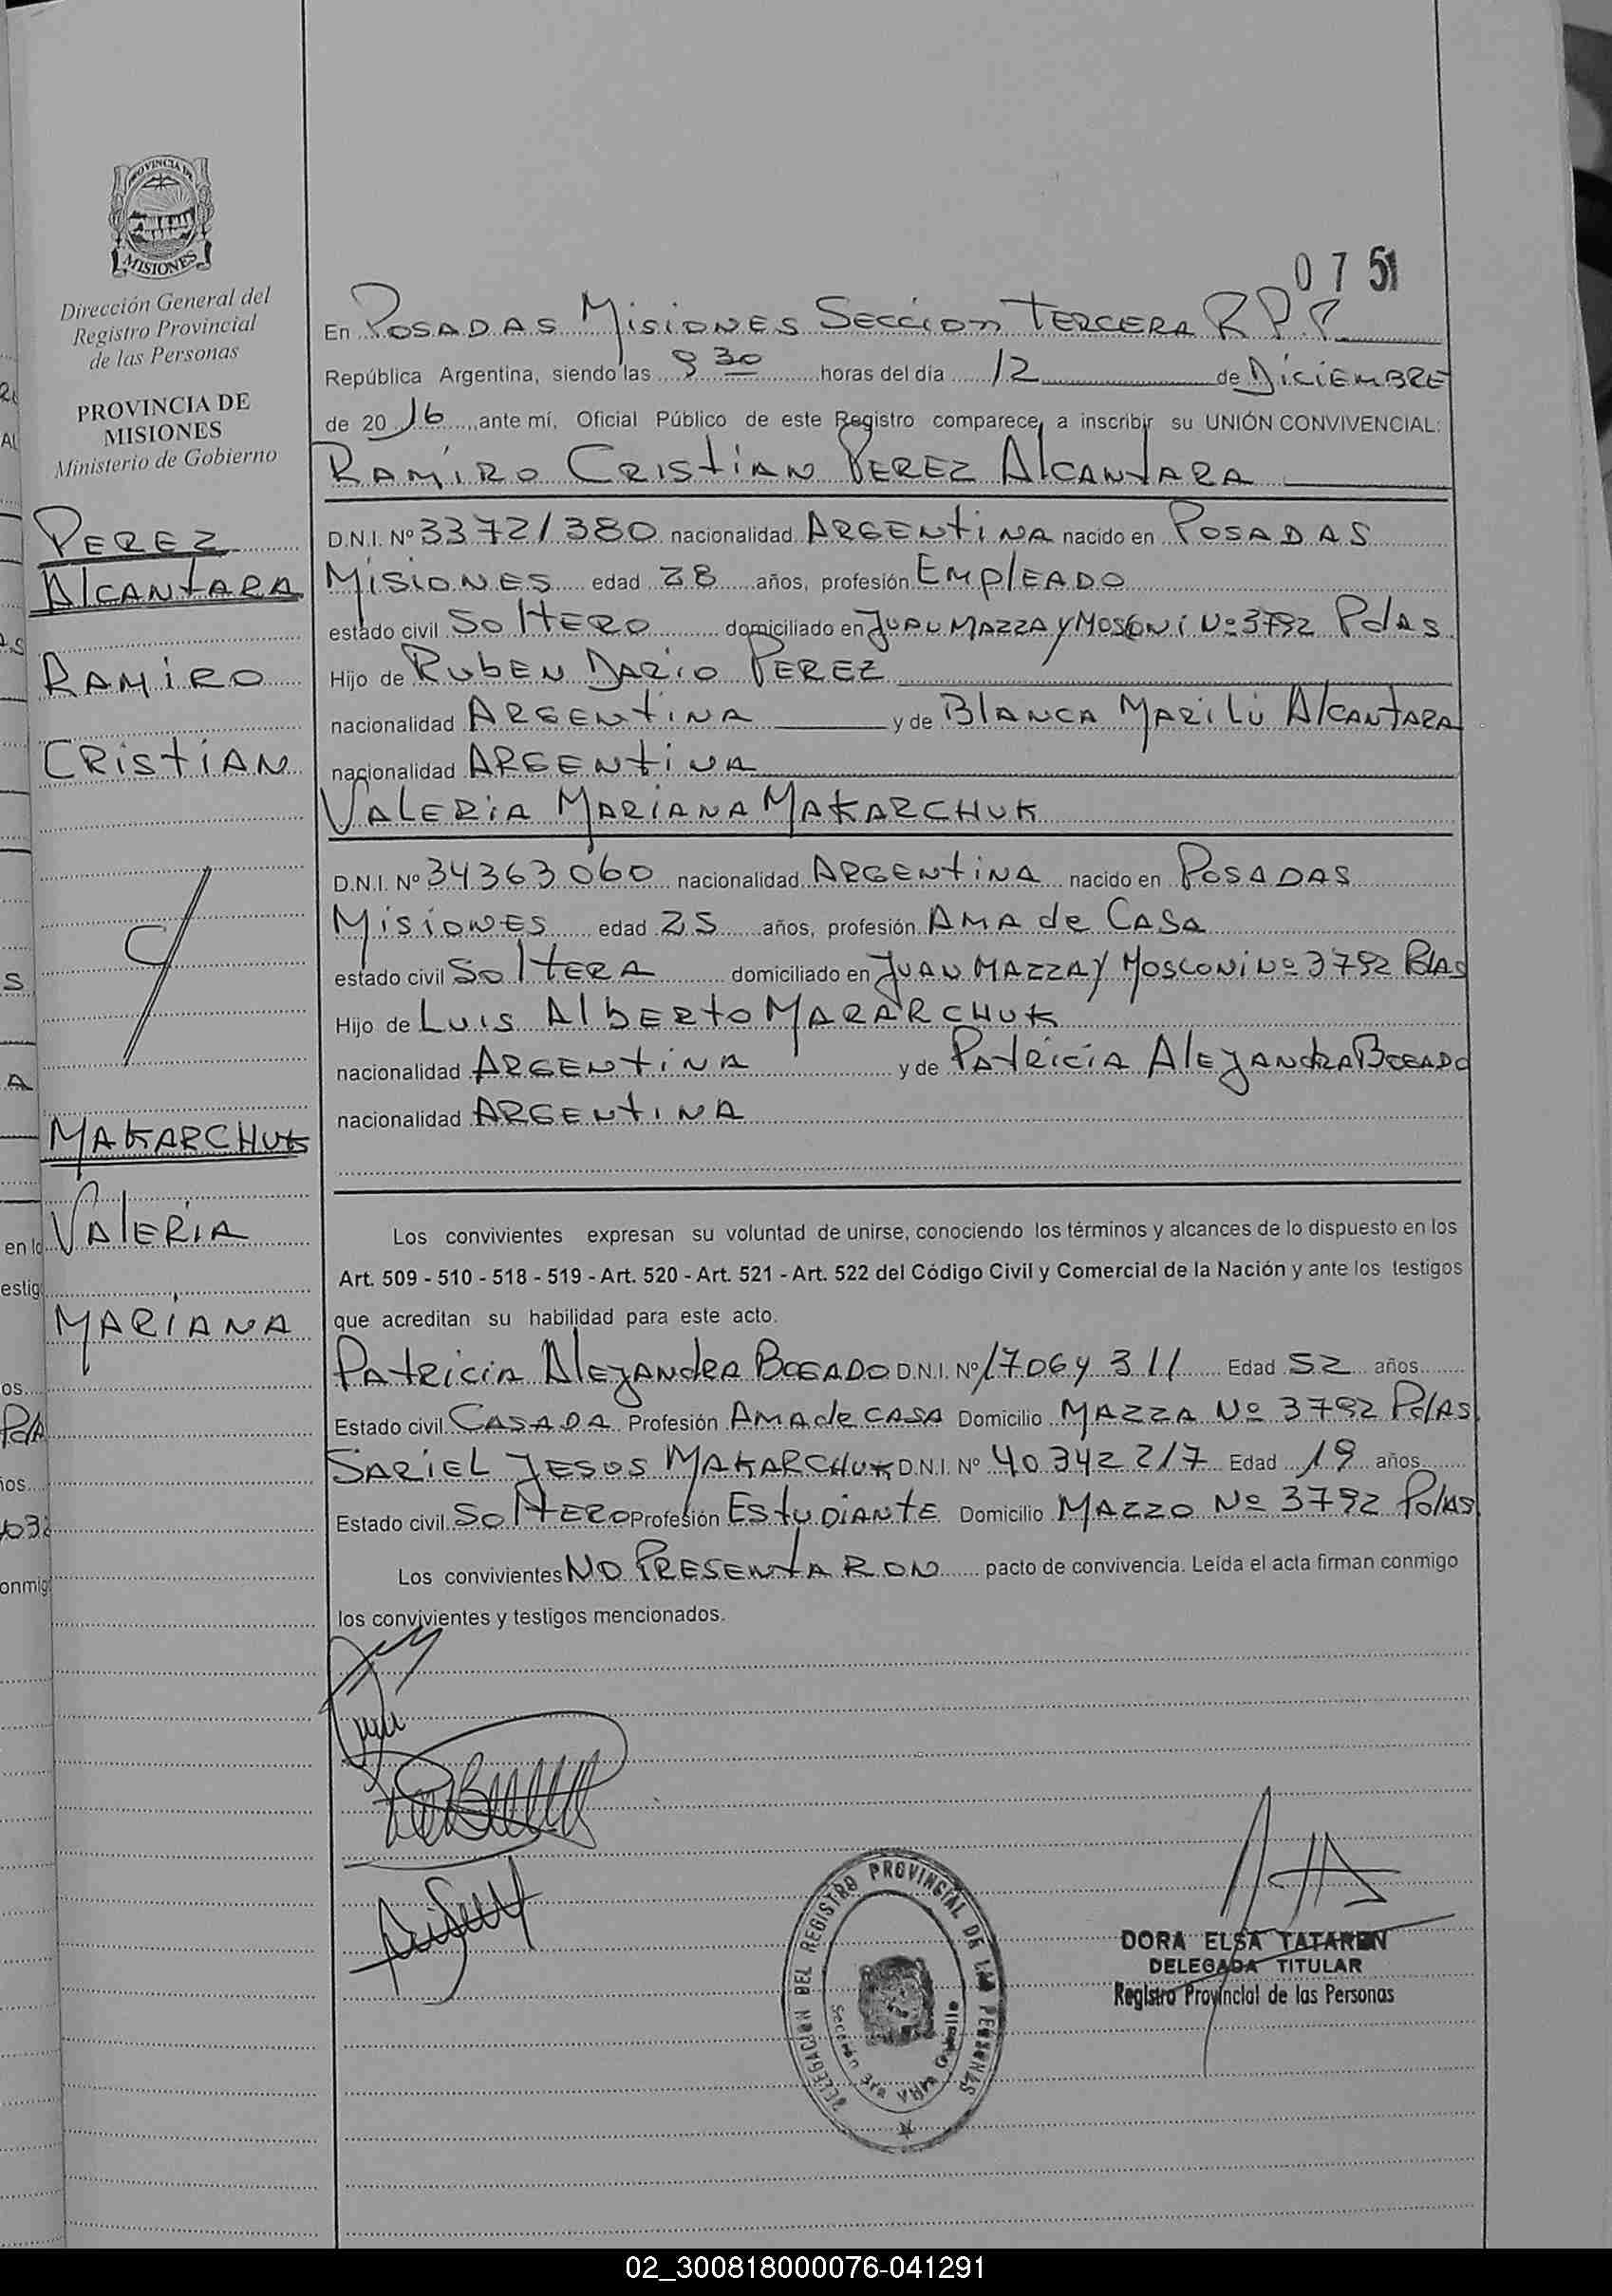 PROVINCIA DE
MISIONES
Dirección General del
Registro Provincial
de las Personas
PROVINCIA DE
MISIONES
Ministerio de Gobierno
PEREZ
ALCANTARA
RAMIRO
CRISTIAN
C/
MAKARCHUK
VALERIA
MARIANA
0751
En POSADAS MISIONES SECCION TERCERA R.P.P.
República Argentina, siendo las 9 30 horas del día 12 de DICIEMBRE
de 2016, ante mí, Oficial Público de este Registro comparece, a inscribir su UNIÓN CONVIVENCIAL:
RAMIRO CRISTIAN PEREZ ALCANTARA
D.N.I. Nº 33721380 nacionalidad ARGENTINA nacido en POSADAS
MISIONES edad 28 años, profesión EMPLEADO
estado civil SOLTERO domiciliado en JUAN MAZZA Y MOSCONI Nº 3792 PdAS
Hijo de RUBEN DARIO PEREZ
nacionalidad ARGENTINA y de BLANCA MARILU ALCANTARA
nacionalidad ARGENTINA
VALERIA MARIANA MAKARCHUK
D.N.I. Nº 34363060 nacionalidad ARGENTINA nacido en POSADAS
MISIONES edad 25 años, profesión AMA de CASA
estado civil SOLTERA domiciliado en JUAN MAZZA Y MOSCONI Nº 3792 PdAS
Hijo de LUIS ALBERTO MARARCHUK
nacionalidad ARGENTINA y de PATRICIA ALEJANDRA BOGADO
nacionalidad ARGENTINA
Los convivientes expresan su voluntad de unirse, conociendo los términos y alcances de lo dispuesto en los
Art. 509 - 510 - 518 - 519 - Art. 520 - Art. 521 - Art. 522 del Código Civil y Comercial de la Nación y ante los testigos
que acreditan su habilidad para este acto.
PATRICIA ALEJANDRA BOGADO D.N.I. Nº 17064311 Edad 52 años
Estado civil CASADA Profesión AMA de CASA Domicilio MAZZA Nº 3792 PdAS
SARIEL JESUS MAKARCHUK D.N.I. Nº 40342217 Edad 19 años
Estado civil SOLTERO Profesión ESTUDIANTE Domicilio MAZZO Nº 3792 PdAS
Los convivientes NO PRESENTARON pacto de convivencia. Leída el acta firman conmigo
los convivientes y testigos mencionados.
DELEGACION DEL REGISTRO PROVINCIAL DE LAS PERSONAS
Sección 3ra
DORA ELSA TATAREN
DELEGADA TITULAR
Registro Provincial de las Personas
02_300818000076-041291